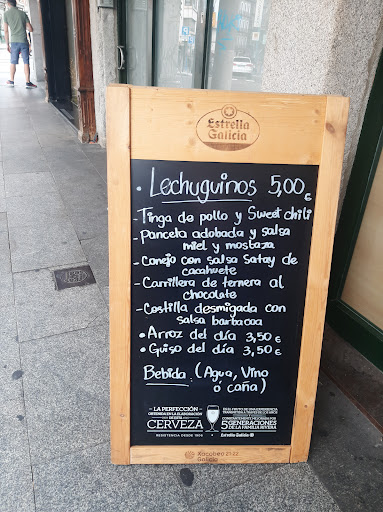 Estrella
Galicia
• Lechuguinos 5,00€
- Tinga de pollo y Sweet chili
- Panceta adobada y salsa
miel y mostaza
- Conejo con salsa Satay de
cacahuete
- Carrillera de ternera al
chocolate
- Costilla desmigada con
salsa barbacoa
• Arroz del día 3,50€
• Guiso del día 3,50€
Bebida (Agua, Vino
ó caña)
LA PERFECCIÓN
OBTENIDA EN LA ELABORACIÓN
DE ESTA
CERVEZA
RESISTENCIA DESDE 1906
ES EL FRUTO DE UNA EXPERIENCIA
TRANSMITIDA A TRAVÉS DE LOS AÑOS
CONSTANTEMENTE MEJORADA POR
5 GENERACIONES
DE LA FAMILIA RIVERA
Estrella Galicia
Xacobeo 21·22
Galicia